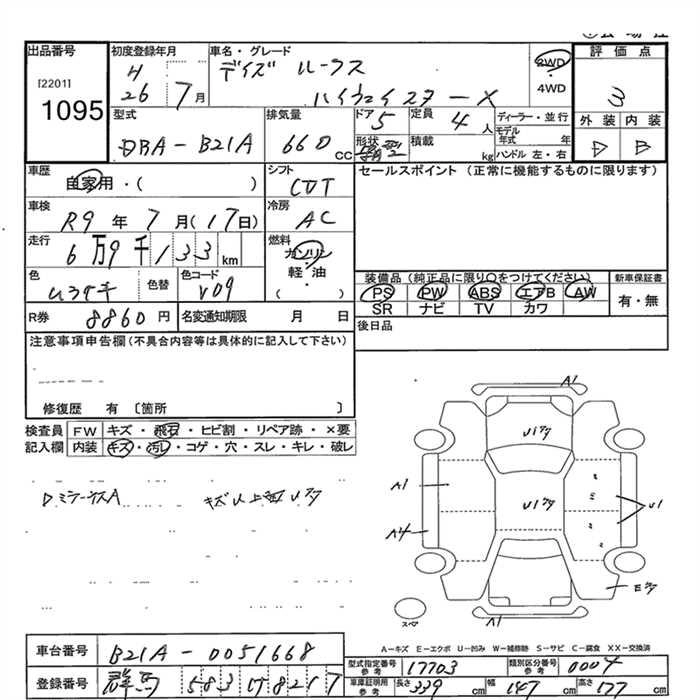 出品番号
[2201]
1095
初度登録年月
H
26 7月
車名・グレード
デイズ ルークス
ハイウェイスターX
2WD
・
4WD
評価点
3
外装 内装
D B
型式
DBA-B21A
排気量
660 CC
ドア
5
定員
4人
形状
積載
kg
ディーラー・並行
モデル年式 年
ハンドル 左・右
車歴
自家用・( )
シフト
CVT
セールスポイント (正常に機能するものに限ります)
車検
R9年7月(17日)
冷房
AC
走行
6万9千133km
燃料
ガソリン
・
軽・油
( )
色
ムラサキ
色替
色コード
V09
装備品 (純正品に限り○をつけてください)
PS PW ABS エアB AW
SR ナビ TV カワ
新車保証書
有・無
R券 8860円
名変通知期限 月 日
後日品
注意事項申告欄(不具合内容等は具体的に記入して下さい)
修復歴 有 〔箇所 〕
検査員記入欄
FW キズ・飛石・ヒビ割・リペア跡・×要
内装 キズ・汚レ・コゲ・穴・スレ・キレ・破レ
ロミラーキズA
キズ以上有 Uクク
A1
U1クク
A1
U1クク
U1
A4
Eクク
スペ
A1
A-キズ E-エクボ U-凹み W-補修跡 S-サビ C-腐食 XX-交換済
車台番号 B21A-0051668
登録番号 群馬 583 ひ 8217
型式指定番号 参考 17703
類別区分番号 参考 0004
車庫証明用 参考 長さ 339cm 幅 147cm 高さ 177cm